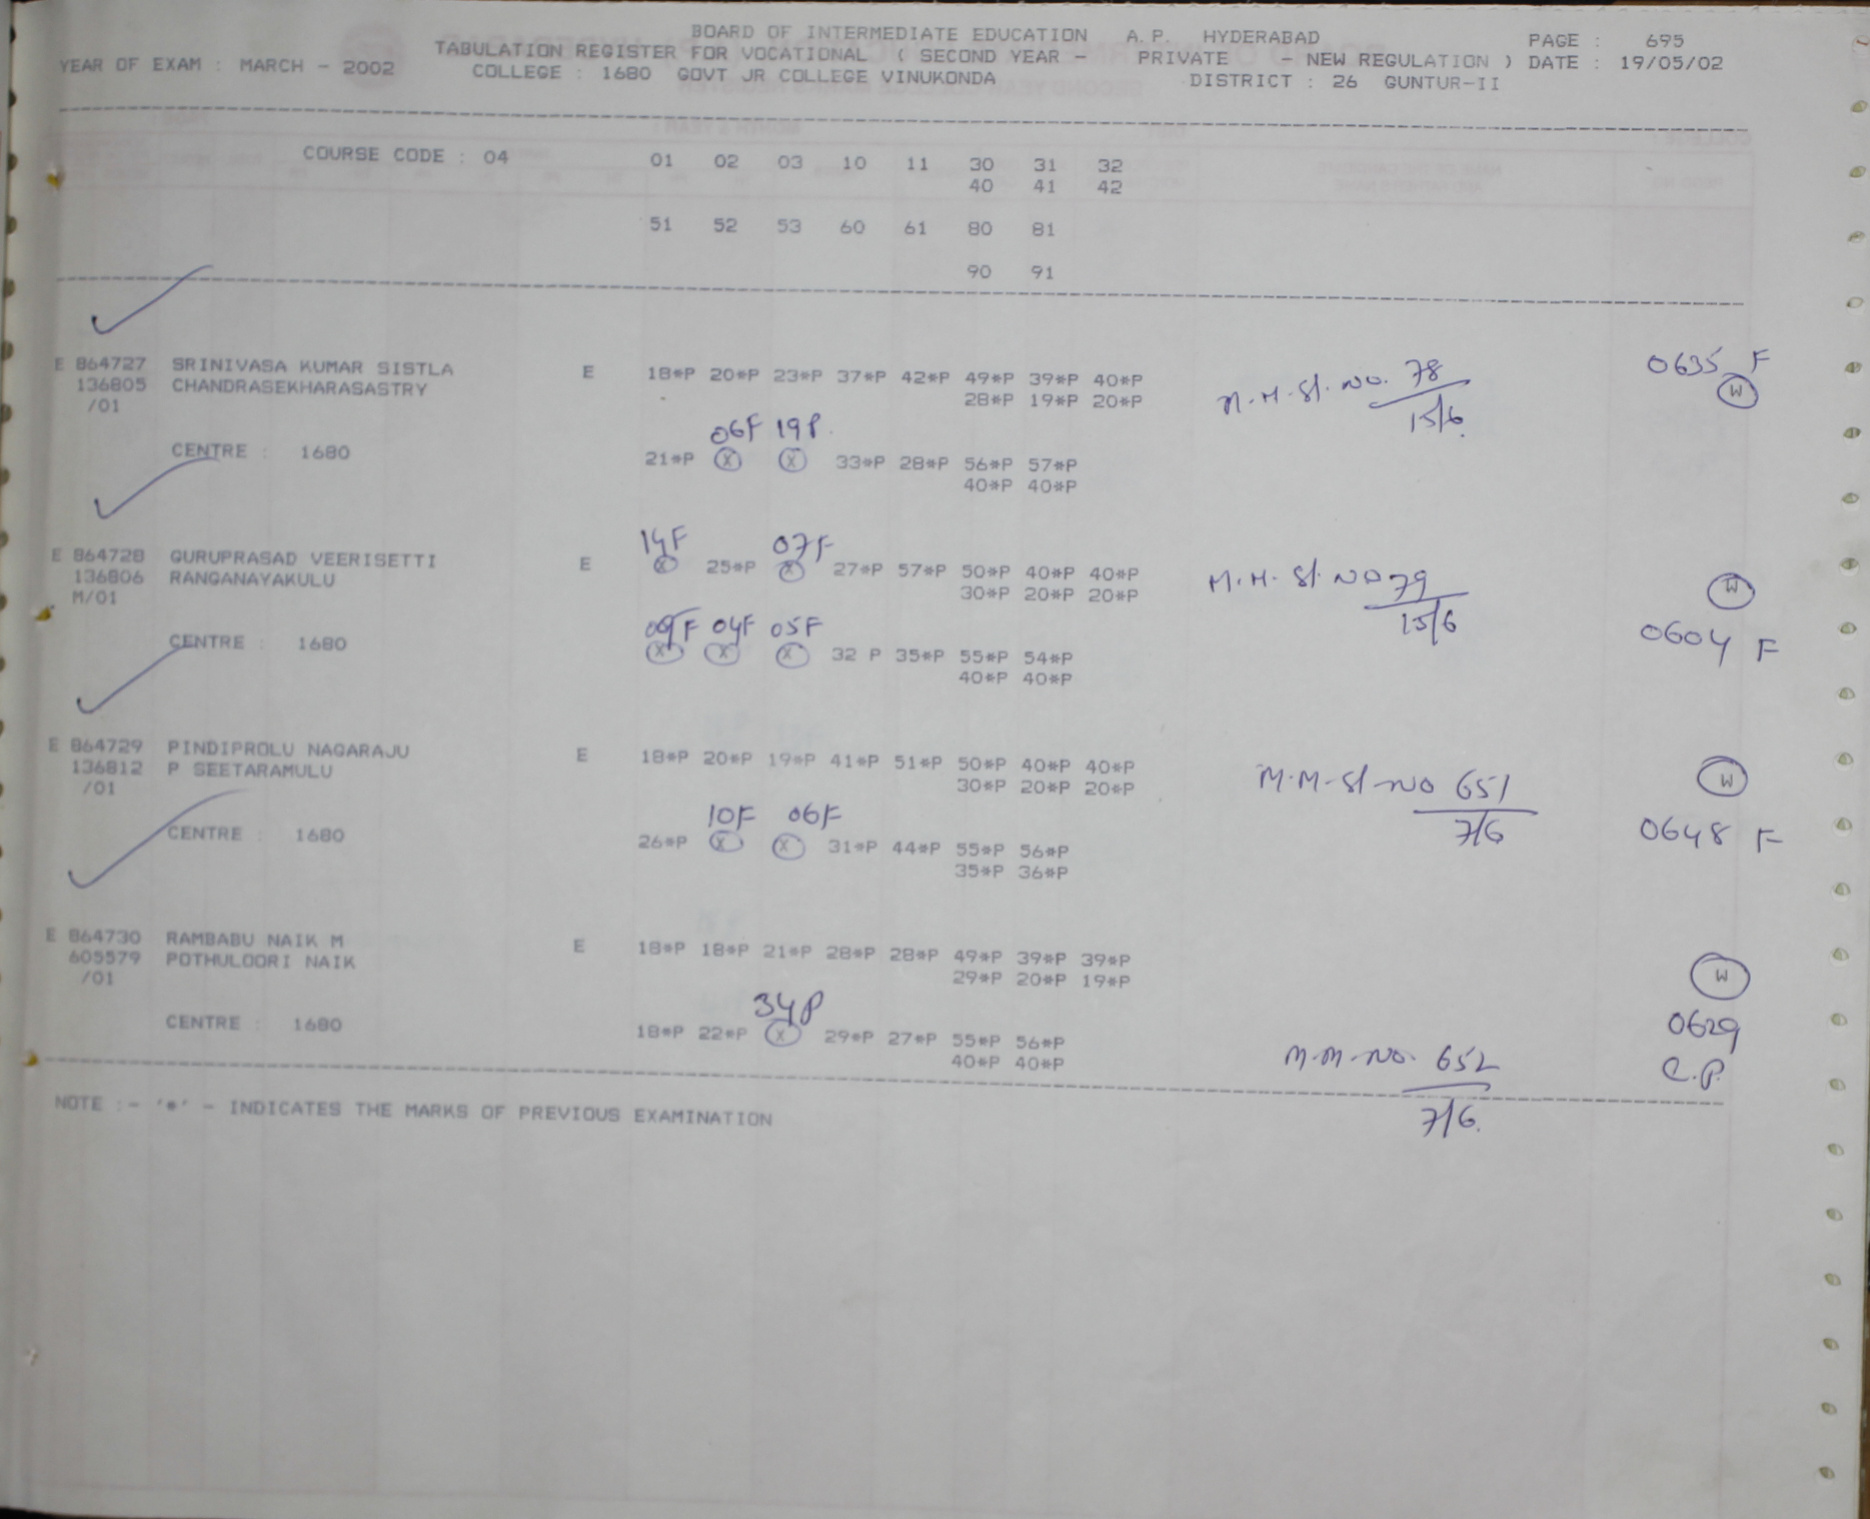 BOARD OF INTERMEDIATE EDUCATION A.P. HYDERABAD PAGE : 695
TABULATION REGISTER FOR VOCATIONAL ( SECOND YEAR - PRIVATE - NEW REGULATION ) DATE : 19/05/02
YEAR OF EXAM : MARCH - 2002 COLLEGE : 1680 GOVT JR COLLEGE VINUKONDA DISTRICT : 26 GUNTUR-II
COURSE CODE : 04 01 02 03 10 11 30 31 32
40 41 42
51 52 53 60 61 80 81
90 91
E 864727 SRINIVASA KUMAR SISTLA E 18*P 20*P 23*P 37*P 42*P 49*P 39*P 40*P M.M.Sl.No. 78 0635 F
136805 CHANDRASEKHARASASTRY 28*P 19*P 20*P 15/6. W
/01
06F 19P.
CENTRE : 1680 21*P X X 33*P 28*P 56*P 57*P
40*P 40*P
14F 07F
E 864728 GURUPRASAD VEERISETTI E X 25*P X 27*P 57*P 50*P 40*P 40*P M.M. Sl. No 79 W
136806 RANGANAYAKULU 30*P 20*P 20*P 15/6
M/01 0604 F
09F 04F 05F
CENTRE : 1680 X X X 32 P 35*P 55*P 54*P
40*P 40*P
E 864729 PINDIPROLU NAGARAJU E 18*P 20*P 19*P 41*P 51*P 50*P 40*P 40*P M.M-Sl-No 651 W
136812 P SEETARAMULU 30*P 20*P 20*P 7/6
/01 0648 F
10F 06F
CENTRE : 1680 26*P X X 31*P 44*P 55*P 56*P
35*P 36*P
E 864730 RAMBABU NAIK M E 18*P 18*P 21*P 28*P 28*P 49*P 39*P 39*P
605579 POTHULOORI NAIK 29*P 20*P 19*P W
/01
34P
CENTRE : 1680 18*P 22*P X 29*P 27*P 55*P 56*P 0629
40*P 40*P M.M.No. 652 C.P.
7/6.
NOTE :- '*' - INDICATES THE MARKS OF PREVIOUS EXAMINATION